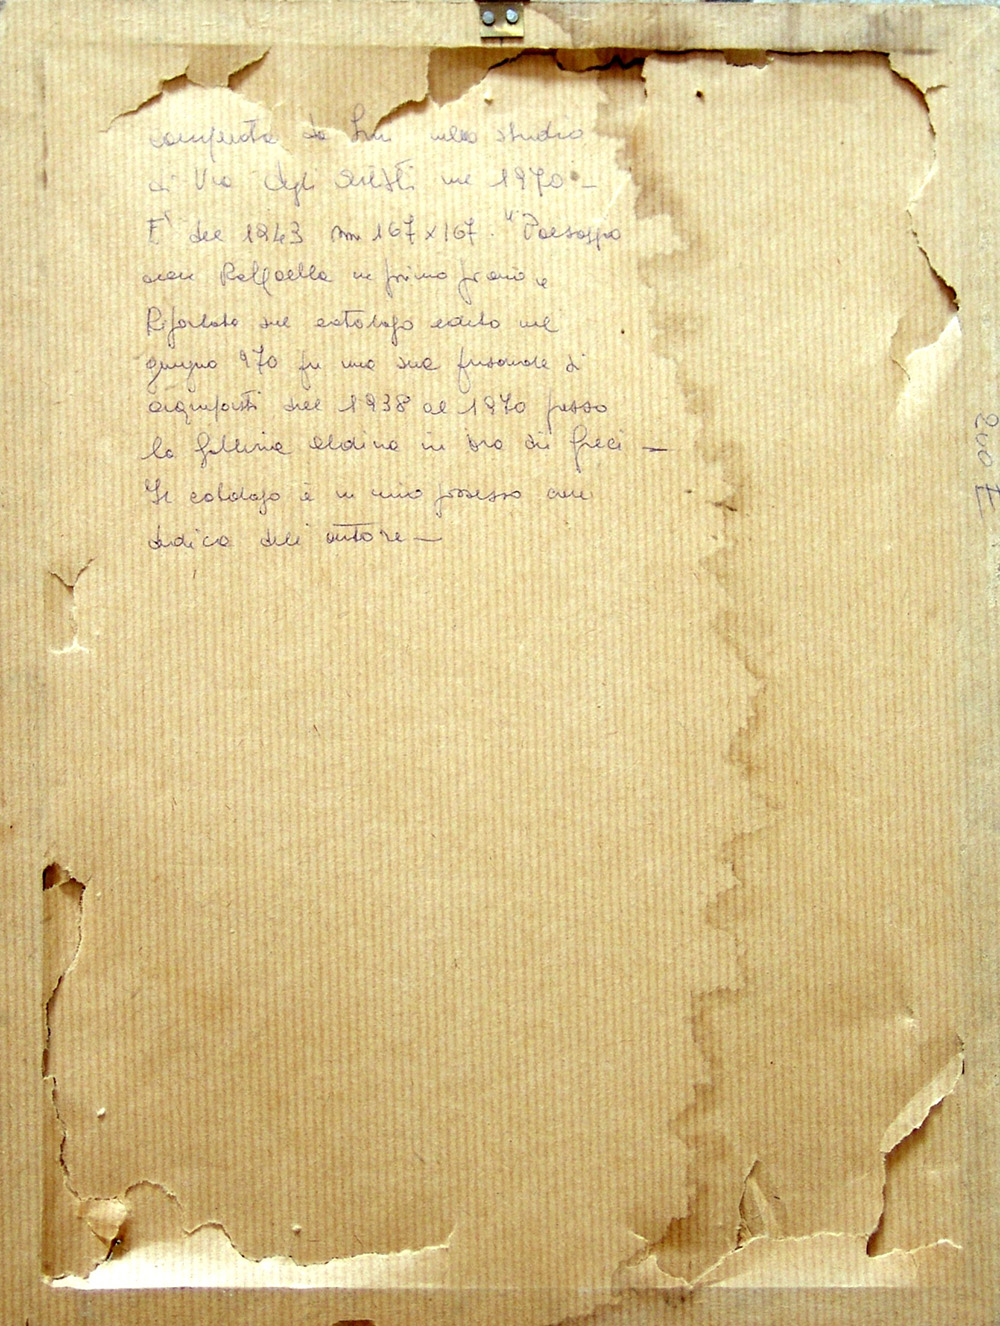 comperata da lui nello studio
di Via degli Artisti nel 1970 -
E' del 1943 mm 167 x 167. "Paesaggio
con Raffaella in primo piano e
Riportata sul catalogo edito nel
giugno 970 per una sua personale di
acqueforti dal 1938 al 1970 presso
la Galleria Aldina in via dei Greci -
Il catalogo è in mio possesso con
dedica dell'autore -
200 E